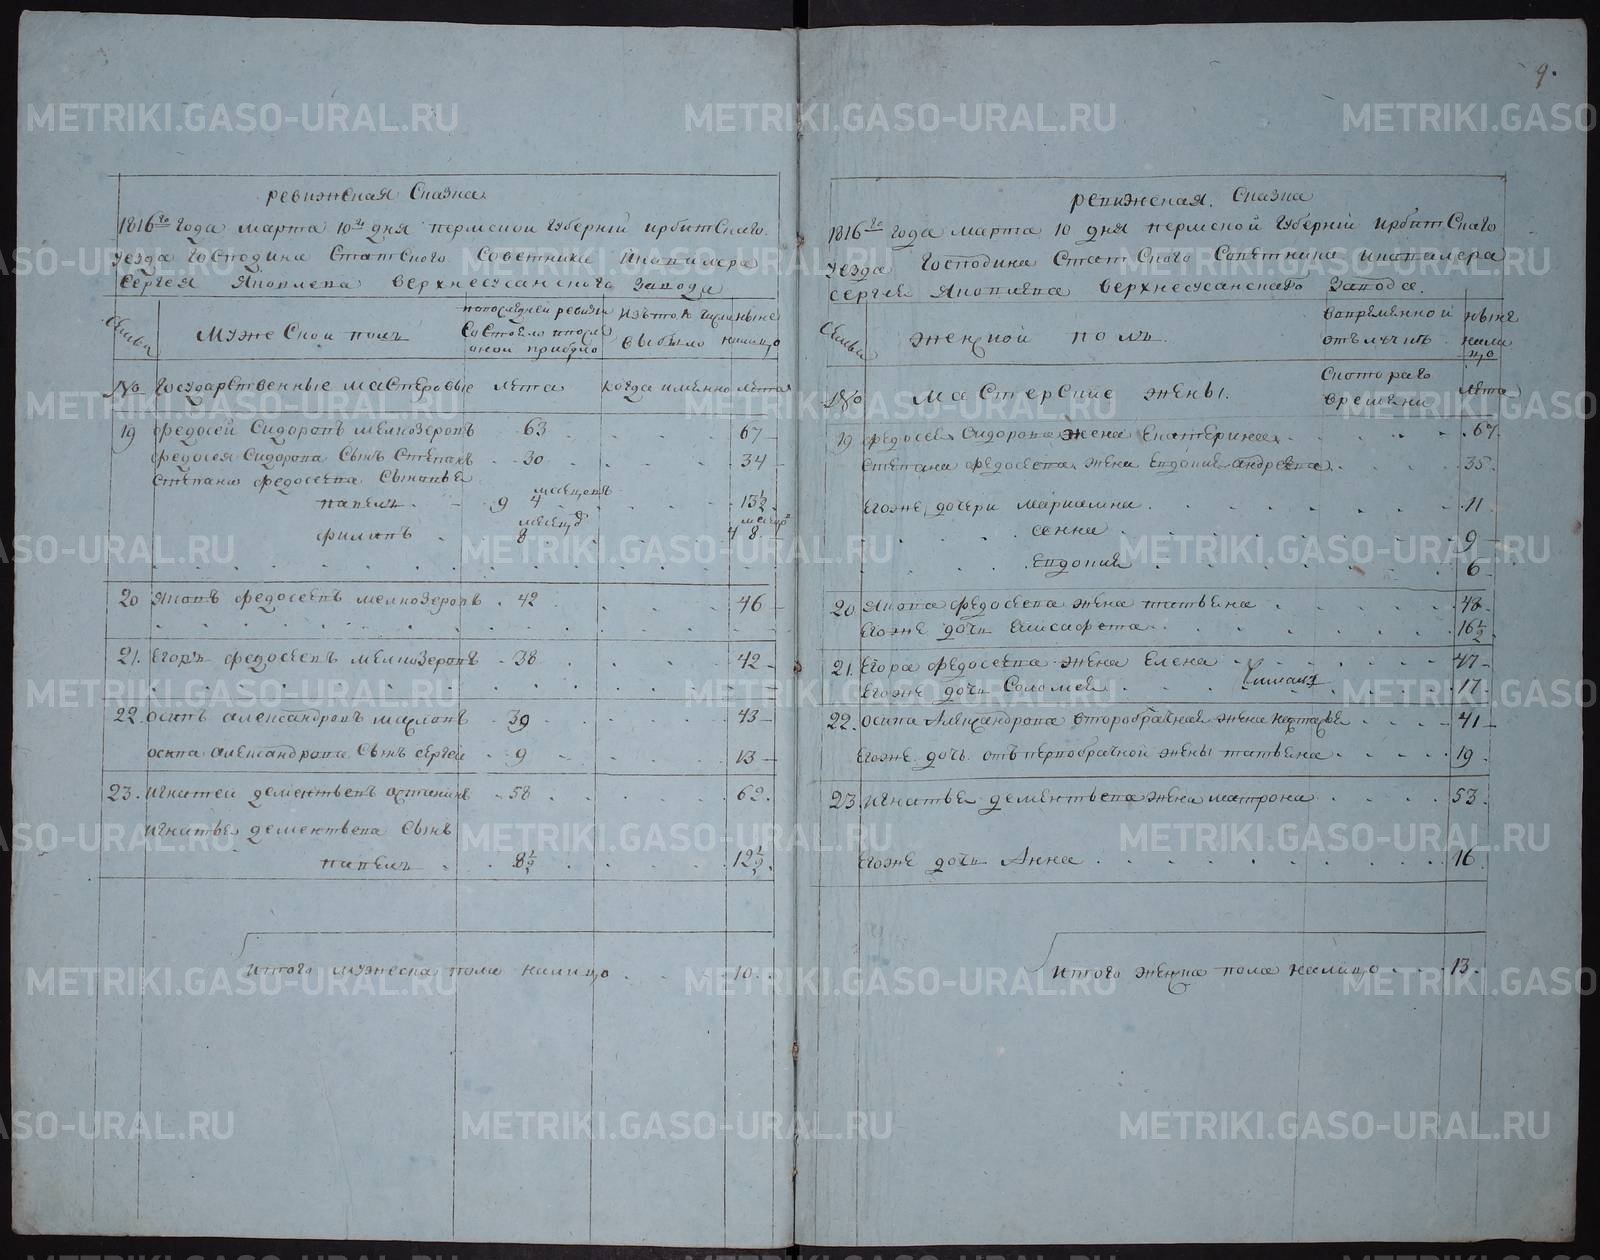 9.
ревижская Сказка
1816го года марта 10го дня пермской губернїи ирбитскаго
уезда господина Статского Советника икавалера
Сергея Яковлева верхнесусанского завода
Семьи
Мужеской полъ
попоследней ревизии состояло ипосле оной прибыло
изътого числа выбыло
ныне налицо
№ государственные мастеровые лета когда именно лета
19 федосей Сидоровъ мелкозеровъ 63 67
федосея Сидорова Сынъ Степанъ 30 34
Степана федосеева Сыновья
месецовъ
павелъ 9 4 13½
филипъ 8 4 8
20 яковъ федосеевъ мелкозеровъ 42 46
21. Егоръ федосеевъ мелкозеровъ 38 42
22. осипъ александровъ 39 43
осипа александрова Сынъ сергей 9 13
23. игнатей дементьевъ 58 62.
игнатья дементьева Сынъ
павелъ 8½ 12½
итого мужеска пола налицо 10.
ревижская. Сказка
1816го года марта 10 дня пермской губернїи ирбитскаго
уезда господина Статского Советника икавалера
сергея Яковлева верхнесусанскаго завода.
Семьи
женской полъ.
вовременной отълучкъ
ныне налицо
№ мастерские жены.
Скотораго времени
лета
19 федосея Сидорова жена Екатерина 67
степана федосеева жена евдокия андреева 35
Егоже дочери мариамна 11
анна 9
евдокия 6
20 якова федосеева жена татьяна 48
Егоже дочь Елисафета 16½
21. Егора федосеева жена Елена 47
Егоже дочь Соломея 17
22. осипа Александрова второбрачная жена 41
Егоже дочь отъ первобрачной жены татьяна 19
23. игнатья дементьева жена матрона 53
Егоже дочь Анна 16
итого женска пола налицо 13.
METRIKI.GASO-URAL.RU